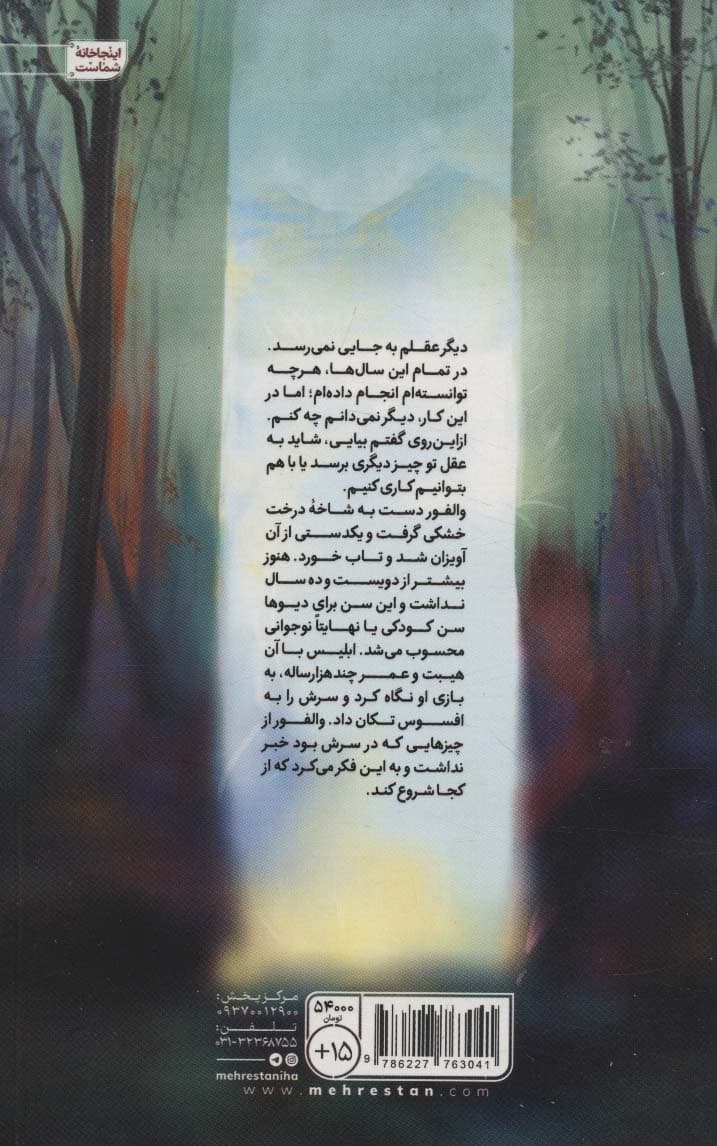 اینجا خانهٔ
شماست
دیگر عقلم به جایی نمی‌رسد.
در تمام این سال‌ها، هرچه
توانسته‌ام انجام داده‌ام؛ اما در
این کار، دیگر نمی‌دانم چه کنم.
ازاین‌روی گفتم بیایی، شاید به
عقل تو چیز دیگری برسد یا با هم
بتوانیم کاری کنیم.
والفور دست به شاخهٔ درخت
خشکی گرفت و یکدستی از آن
آویزان شد و تاب خورد. هنوز
بیشتر از دویست و ده سال
نداشت و این سن برای دیوها
سن کودکی یا نهایتاً نوجوانی
محسوب می‌شد. ابلیس با آن
هیبت و عمر چند‌هزارساله، به
بازی او نگاه کرد و سرش را به
افسوس تکان داد. والفور از
چیزهایی که در سرش بود خبر
نداشت و به این فکر می‌کرد که از
کجا شروع کند.
مرکز پخش:
۰۹۳۷۰۰۱۲۹۰۰
تلفن:
۰۳۱-۳۲۳۶۸۷۵۵
mehrestaniha
۵۴۰۰۰
تومان
+۱۵
9 786227 763041
www.mehrestan.com